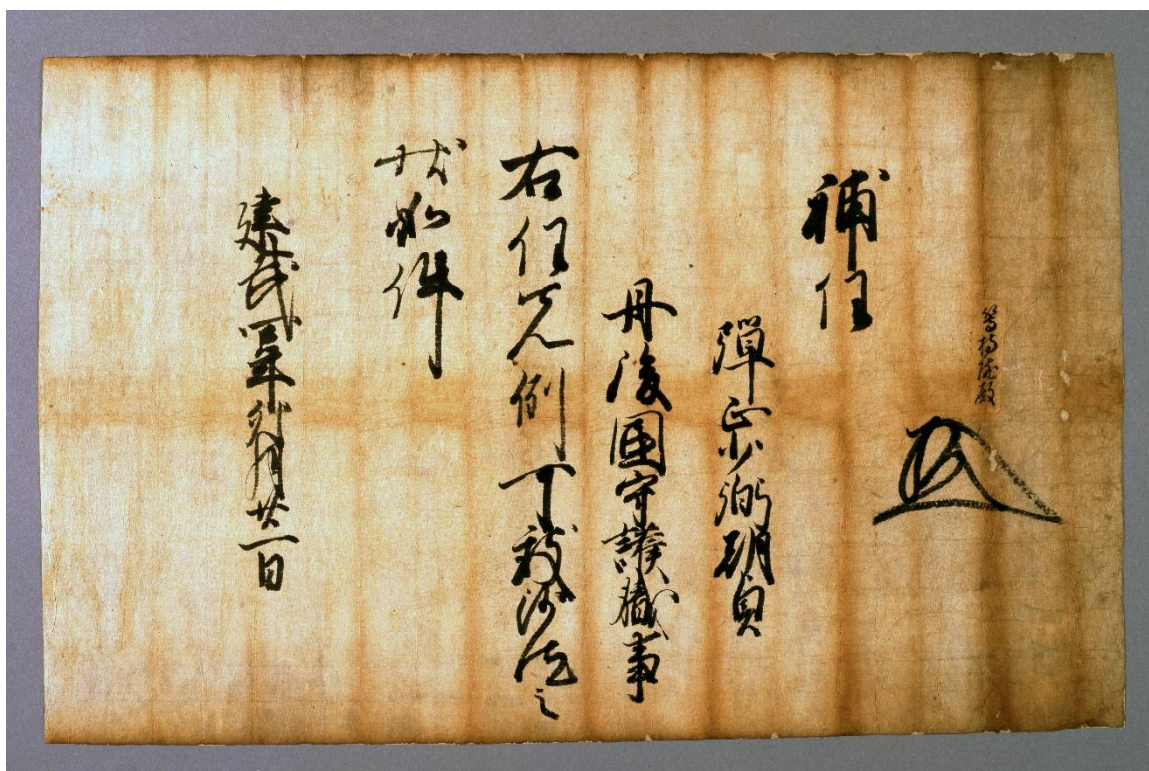 等持院殿
補任
彈正少弼朝貞
丹後国守護職事
右任先例可致沙汰之
状如件
建武四年卯月廿一日